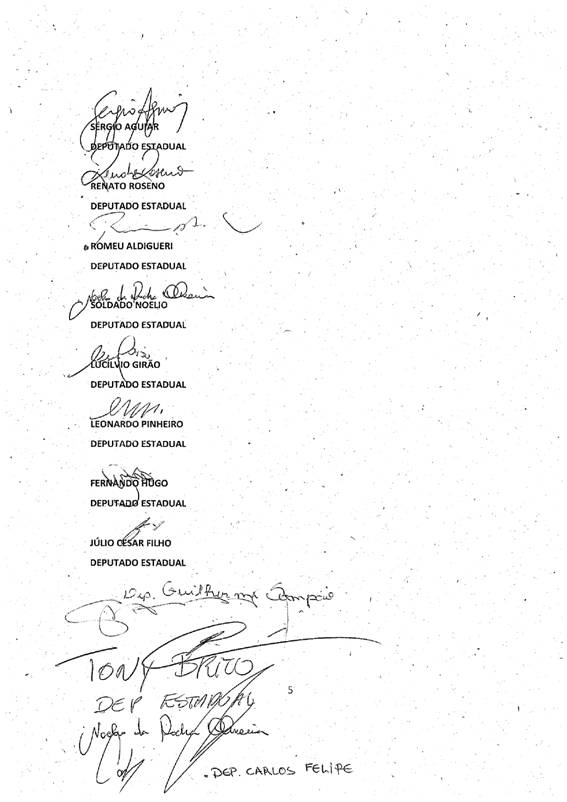 Sérgio Aguiar
SÉRGIO AGUIAR
DEPUTADO ESTADUAL
Renato Roseno
RENATO ROSENO
DEPUTADO ESTADUAL
ROMEU ALDIGUERI
DEPUTADO ESTADUAL
Noelio da Rocha Oliveira
SOLDADO NOELIO
DEPUTADO ESTADUAL
LUCÍLVIO GIRÃO
DEPUTADO ESTADUAL
LEONARDO PINHEIRO
DEPUTADO ESTADUAL
FERNANDO HUGO
DEPUTADO ESTADUAL
JÚLIO CÉSAR FILHO
DEPUTADO ESTADUAL
Dep. Guilherme Sampaio
TONY BRITO
DEP ESTADUAL
5
Noelio da Rocha Oliveira
. DEP. CARLOS FELIPE